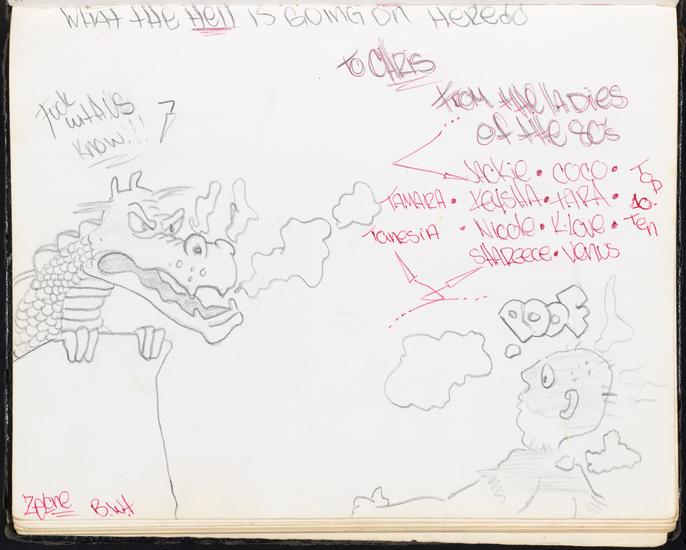 WHAT THE Hell IS GOING ON HERE
TO CHRIS
From THE LADIES
OF THE 80's
JACKIE • COCO •
TAMARA • KEYSHA • TARA •
TANESIA • Nicole • K-Love •
SHAREECE • VENUS
TOP
10.
Ten
Fuck
KNOW!!
POOF
B.W.H